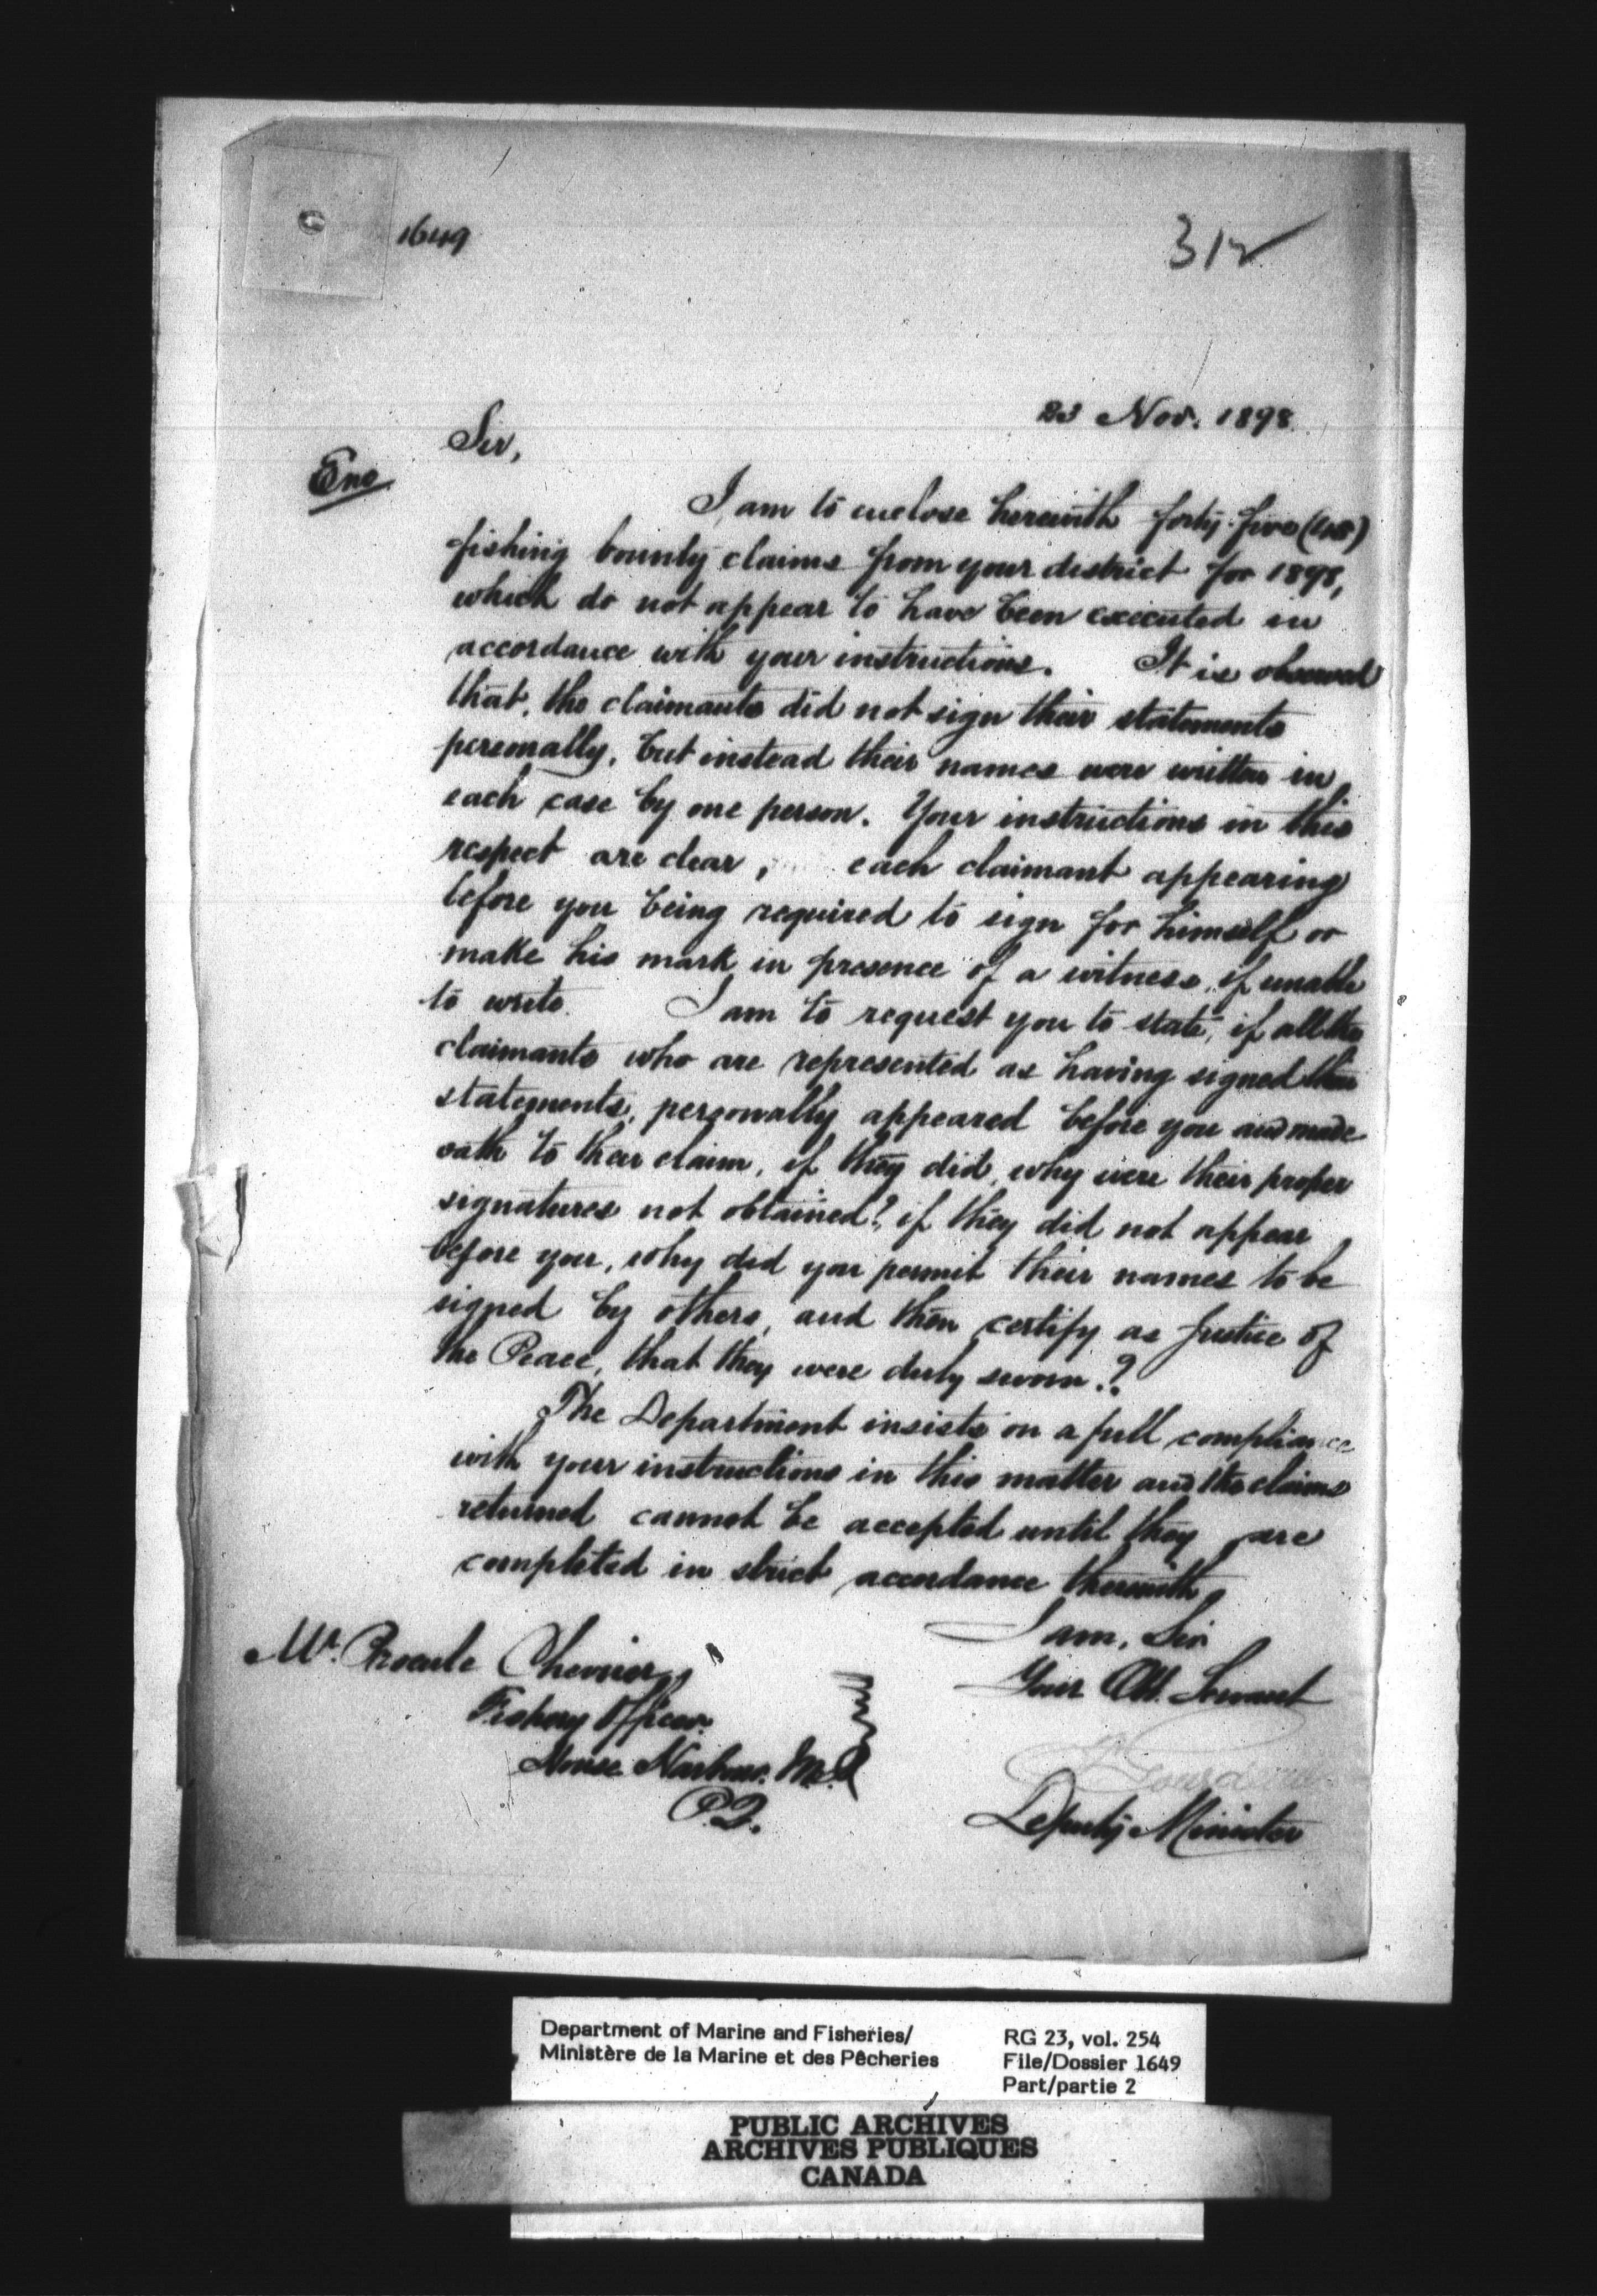 1649
312
23 Nov. 1898.
Sir,
Enc
I am to enclose herewith forty-five (45)
fishing bounty claims from your district for 1898,
which do not appear to have been executed in
accordance with your instructions. It is observed
that, the claimants did not sign their statements
personally, but instead their names were written in
each case by one person. Your instructions in this
respect are clear, each claimant appearing
before you being required to sign for himself or
make his mark in presence of a witness, if unable
to write. I am to request you to state, if all the
claimants who are represented as having signed their
statements, personally appeared before you and made
oath to their claim, if they did, why were their proper
signatures not obtained?, if they did not appear
before you, why did you permit their names to be
signed by others, and then certify as Justice of
the Peace, that they were duly sworn.?
The Department insists on a full compliance
with your instructions in this matter and the claims
returned cannot be accepted until they are
completed in strict accordance therewith,
I am, Sir
Your Obt. Servant
Gourdeau
Deputy Minister
Mr. Chevrier,
Fishery Officer.
House Harbour. M.I.
P.Q.
Department of Marine and Fisheries/
Ministère de la Marine et des Pêcheries
RG 23, vol. 254
File/Dossier 1649
Part/partie 2
PUBLIC ARCHIVES
ARCHIVES PUBLIQUES
CANADA